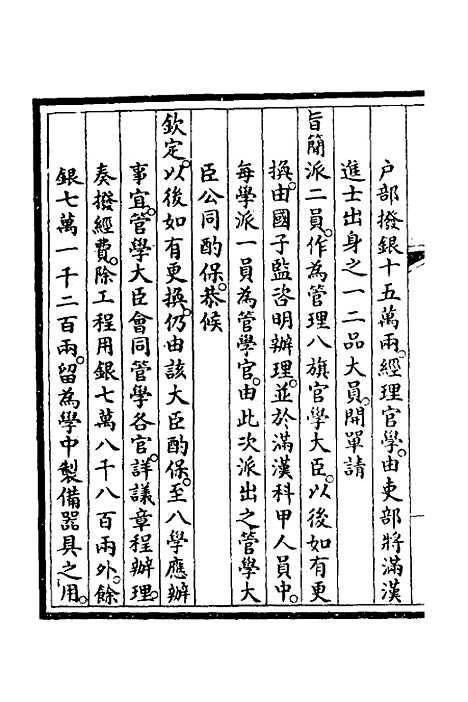 户部撥銀十五萬兩。經理官學。由吏部將滿漢
進士出身之一二品大員。開單請
旨簡派二員。作為管理八旗官學大臣。以後如有更
換。由國子監咨明辦理。並於滿漢科甲人員中。
每學派一員為管學官。由此次派出之管學大
臣公同酌保。恭候
欽定。以後如有更換。仍由該大臣酌保。至八學應辦
事宜。管學大臣會同管學各官。詳議章程辦理。
奏撥經費。除工程用銀七萬八千八百兩外。餘
銀七萬一千二百兩。留為學中製備器具之用。